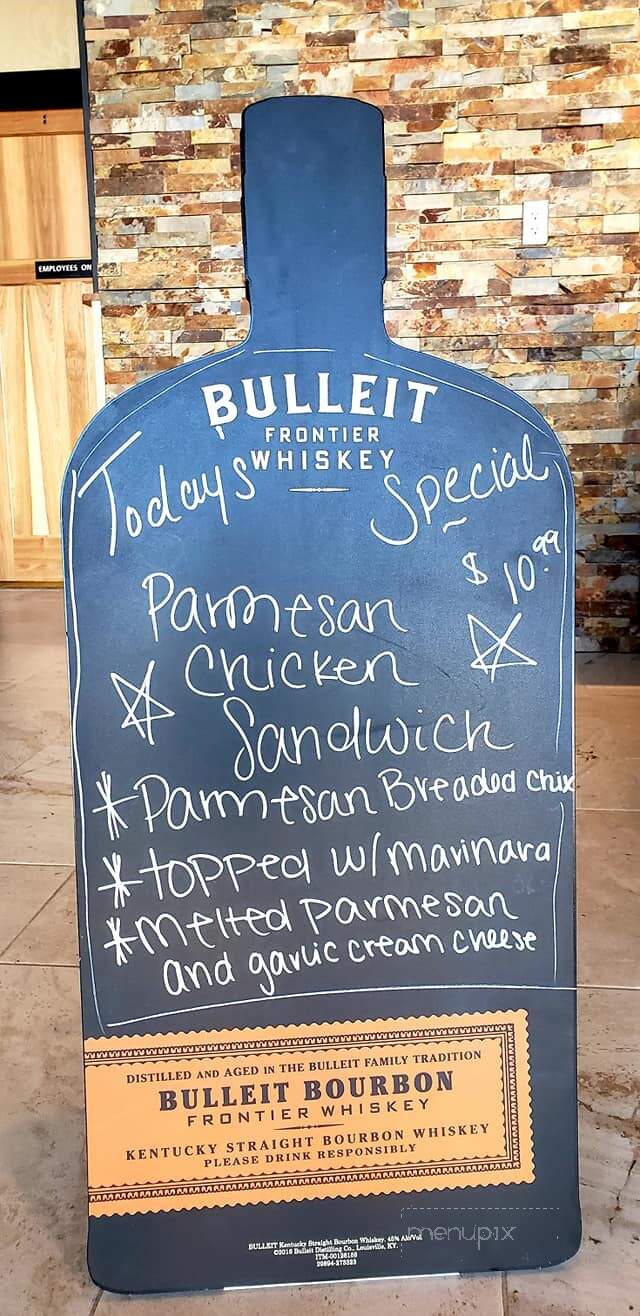 EMPLOYEES ON
BULLEIT
FRONTIER
WHISKEY
Today's Special
$10.99
Parmesan
Chicken
Sandwich
* Parmesan Breaded Chix
* topped w/ marinara
* melted parmesan
and garlic cream cheese
DISTILLED AND AGED IN THE BULLEIT FAMILY TRADITION
BULLEIT BOURBON
FRONTIER WHISKEY
KENTUCKY STRAIGHT BOURBON WHISKEY
PLEASE DRINK RESPONSIBLY
menupix
BULLEIT Kentucky Straight Bourbon Whiskey. 45% Alc/Vol
©2016 Bulleit Distilling Co., Louisville, KY.